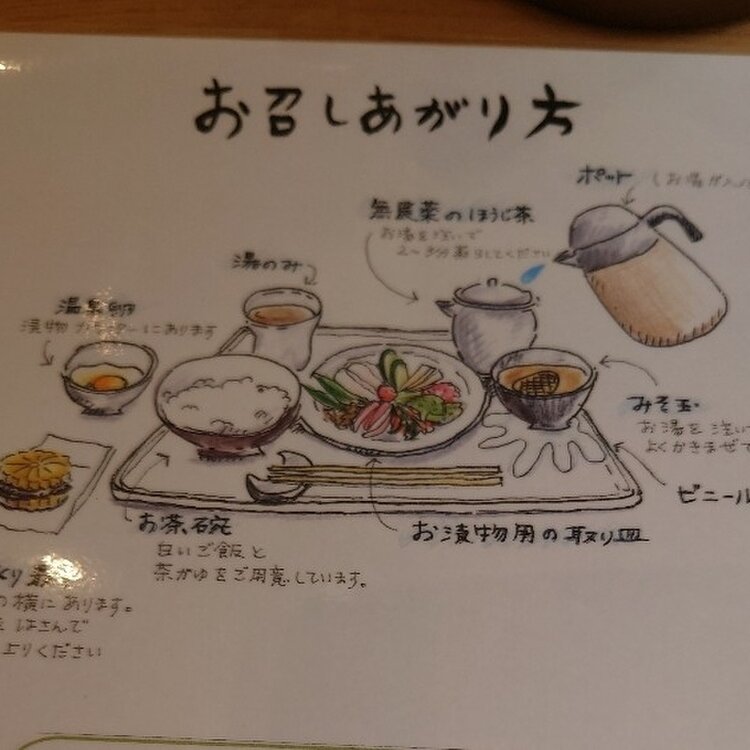 お召しあがり方
ポット
お湯が入
無農薬のほうじ茶
お湯を注いで
2〜3分蒸らしてください
湯のみ
温泉卵
漬物カウンターにあります
みそ玉
お湯を注い
よくかきまぜて
ビニール
お茶碗
白いご飯と
茶がゆをご用意しています。
お漬物用の取り皿
の横にあります。
はさんで
上りください